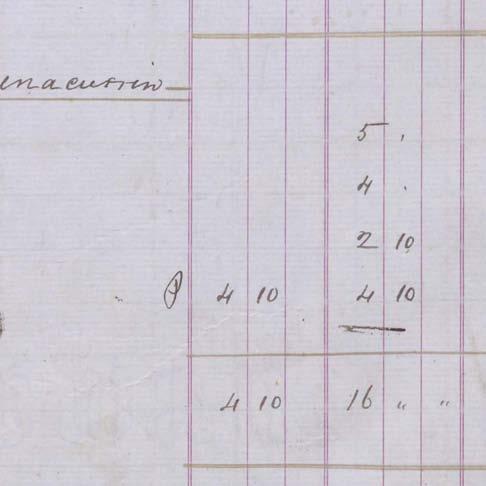 5 .
4 .
2 10
4 10 4 10
4 10 16 " "